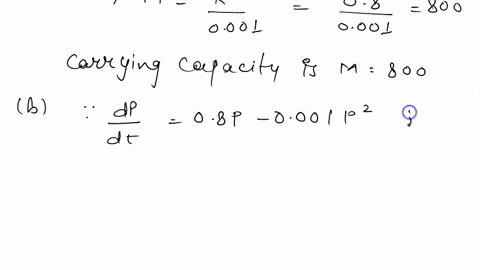 M = K / 0.001 = 0.8 / 0.001 = 800
Carrying capacity is M = 800
(b) ∵ dP/dt = 0.8P - 0.001 P² ;